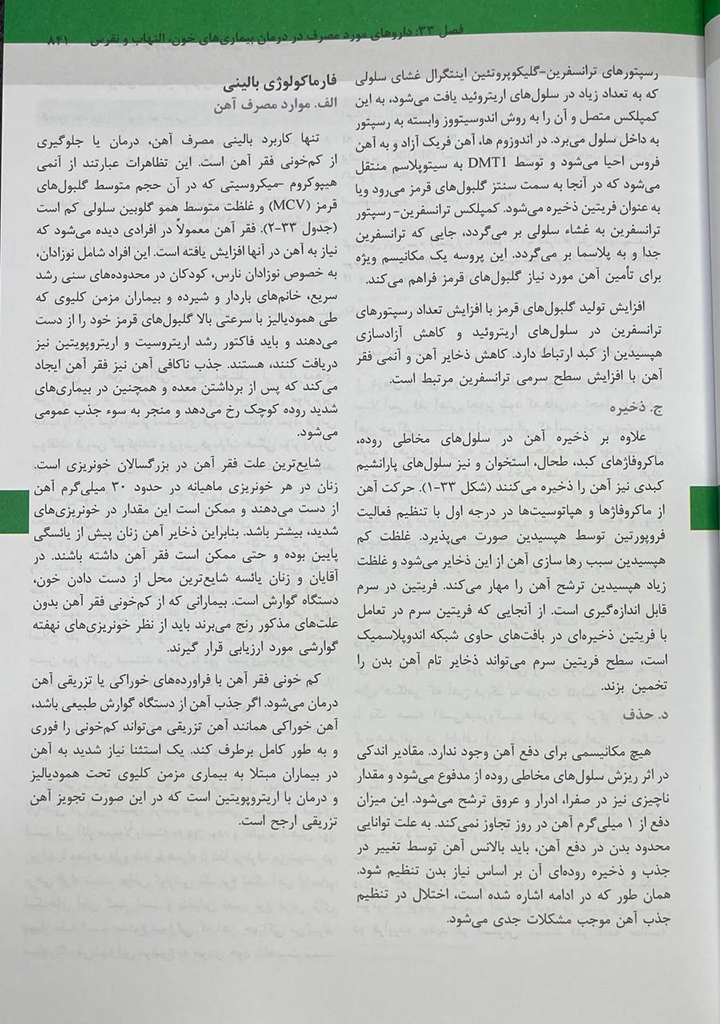 فصل ۳۳: داروهای مورد مصرف در درمان بیماری‌های خون، التهاب و نقرس ۸۴۱
رسپتورهای ترانسفرین-گلیکوپروتئین اینتگرال غشای سلولی
که به تعداد زیاد در سلول‌های اریتروئید یافت می‌شود، به این
کمپلکس متصل و آن را به روش اندوسیتووز وابسته به رسپتور
به داخل سلول می‌برد. در اندوزوم ها، آهن فریک آزاد و به آهن
فروس احیا می‌شود و توسط DMT1 به سیتوپلاسم منتقل
می‌شود که در آنجا به سمت سنتز گلبول‌های قرمز می‌رود ویا
به عنوان فریتین ذخیره می‌شود. کمپلکس ترانسفرین- رسپتور
ترانسفرین به غشاء سلولی بر می‌گردد، جایی که ترانسفرین
جدا و به پلاسما بر می‌گردد. این پروسه یک مکانیسم ویژه
برای تأمین آهن مورد نیاز گلبول‌های قرمز فراهم می‌کند.
افزایش تولید گلبول‌های قرمز با افزایش تعداد رسپتورهای
ترانسفرین در سلول‌های اریتروئید و کاهش آزادسازی
هپسیدین از کبد ارتباط دارد. کاهش ذخایر آهن و آنمی فقر
آهن با افزایش سطح سرمی ترانسفرین مرتبط است.
ج. ذخیره
علاوه بر ذخیره آهن در سلول‌های مخاطی روده،
ماکروفاژهای کبد، طحال، استخوان و نیز سلول‌های پارانشیم
کبدی نیز آهن را ذخیره می‌کنند (شکل ۳۳-۱). حرکت آهن
از ماکروفاژها و هپاتوسیت‌ها در درجه اول با تنظیم فعالیت
فروپورتین توسط هپسیدین صورت می‌پذیرد. غلظت کم
هپسیدین سبب رها سازی آهن از این ذخایر می‌شود و غلظت
زیاد هپسیدین ترشح آهن را مهار می‌کند. فریتین در سرم
قابل اندازه‌گیری است. از آنجایی که فریتین سرم در تعامل
با فریتین ذخیره‌ای در بافت‌های حاوی شبکه اندوپلاسمیک
است، سطح فریتین سرم می‌تواند ذخایر تام آهن بدن را
تخمین بزند.
د. حذف
هیچ مکانیسمی برای دفع آهن وجود ندارد. مقادیر اندکی
در اثر ریزش سلول‌های مخاطی روده از مدفوع می‌شود و مقدار
ناچیزی نیز در صفرا، ادرار و عروق ترشح می‌شود. این میزان
دفع از ۱ میلی‌گرم آهن در روز تجاوز نمی‌کند. به علت توانایی
محدود بدن در دفع آهن، باید بالانس آهن توسط تغییر در
جذب و ذخیره روده‌ای آن بر اساس نیاز بدن تنظیم شود.
همان طور که در ادامه اشاره شده است، اختلال در تنظیم
جذب آهن موجب مشکلات جدی می‌شود.
فارماکولوژی بالینی
الف. موارد مصرف آهن
تنها کاربرد بالینی مصرف آهن، درمان یا جلوگیری
از کم‌خونی فقر آهن است. این تظاهرات عبارتند از آنمی
هیپوکروم -میکروسیتی که در آن حجم متوسط گلبول‌های
قرمز (MCV) و غلظت متوسط همو گلوبین سلولی کم است
(جدول ۳۳-۲). فقر آهن معمولاً در افرادی دیده می‌شود که
نیاز به آهن در آنها افزایش یافته است. این افراد شامل نوزادان،
به خصوص نوزادان نارس، کودکان در محدوده‌های سنی رشد
سریع، خانم‌های باردار و شیرده و بیماران مزمن کلیوی که
طی همودیالیز با سرعتی بالا گلبول‌های قرمز خود را از دست
می‌دهند و باید فاکتور رشد اریتروسیت و اریتروپویتین نیز
دریافت کنند، هستند. جذب ناکافی آهن نیز فقر آهن ایجاد
می‌کند که پس از برداشتن معده و همچنین در بیماری‌های
شدید روده کوچک رخ می‌دهد و منجر به سوء جذب عمومی
می‌شود.
شایع‌ترین علت فقر آهن در بزرگسالان خونریزی است.
زنان در هر خونریزی ماهیانه در حدود ۳۰ میلی‌گرم آهن
از دست می‌دهند و ممکن است این مقدار در خونریزی‌های
شدید، بیشتر باشد. بنابراین ذخایر آهن زنان پیش از یائسگی
پایین بوده و حتی ممکن است فقر آهن داشته باشند. در
آقایان و زنان یائسه شایع‌ترین محل از دست دادن خون،
دستگاه گوارش است. بیمارانی که از کم‌خونی فقر آهن بدون
علت‌های مذکور رنج می‌برند باید از نظر خونریزی‌های نهفته
گوارشی مورد ارزیابی قرار گیرند.
کم خونی فقر آهن با فراورده‌های خوراکی یا تزریقی آهن
درمان می‌شود. اگر جذب آهن از دستگاه گوارش طبیعی باشد،
آهن خوراکی همانند آهن تزریقی می‌تواند کم‌خونی را فوری
و به طور کامل برطرف کند. یک استثنا نیاز شدید به آهن
در بیماران مبتلا به بیماری مزمن کلیوی تحت همودیالیز
و درمان با اریتروپویتین است که در این صورت تجویز آهن
تزریقی ارجح است.